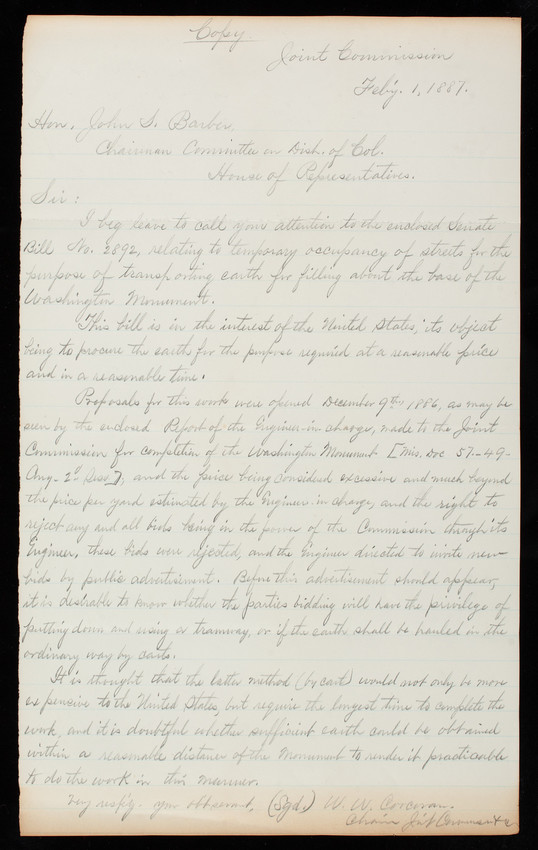 Copy
Joint Commission
Feb'y. 1, 1887.
Hon. John S. Barber,
Chairman Committee on Dist. of Col.
House of Representatives.
Sir:
I beg leave to call your attention to the enclosed Senate
Bill No. 2892, relating to temporary occupancy of streets for the
purpose of transporting earth for filling about the base of the
Washington Monument.
This bill is in the interest of the United States, its object
being to procure the earth for the purpose required at a reasonable price
and in a reasonable time.
Proposals for this work were opened December 9th, 1886, as may be
seen by the enclosed Report of the Engineer in charge, made to the Joint
Commission for completion of the Washington Monument [Mis. Doc 57-49-
Cong. 2d Sess]; and the price being considered excessive and much beyond
the price per yard estimated by the Engineer in charge, and the right to
reject any and all bids being in the power of the Commission through its
Engineer, these bids were rejected, and the Engineer directed to invite new
bids by public advertisement. Before this advertisement should appear,
it is desirable to know whether the parties bidding will have the privilege of
putting down and using a tramway, or if the earth shall be hauled in the
ordinary way by carts.
It is thought that the latter method (by cart) would not only be more
expensive to the United States, but require the longest time to complete the
work, and it is doubtful whether sufficient earth could be obtained
within a reasonable distance of the Monument to render it practicable
to do the work in this manner.
Very resp'y. your obt servant, (Sgd.) W. W. Corcoran.
Chair'n Jt